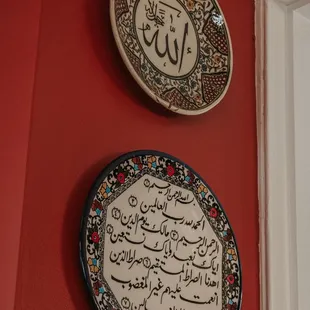 الله
بسم الله الرحمن الرحيم
الحمد لله رب العالمين ٢
الرحمن الرحيم ٣ مالك يوم الدين ٤
اياك نعبد واياك نستعين ٥
اهدنا الصراط المستقيم ٦ صراط الذين
انعمت عليهم غير المغضوب